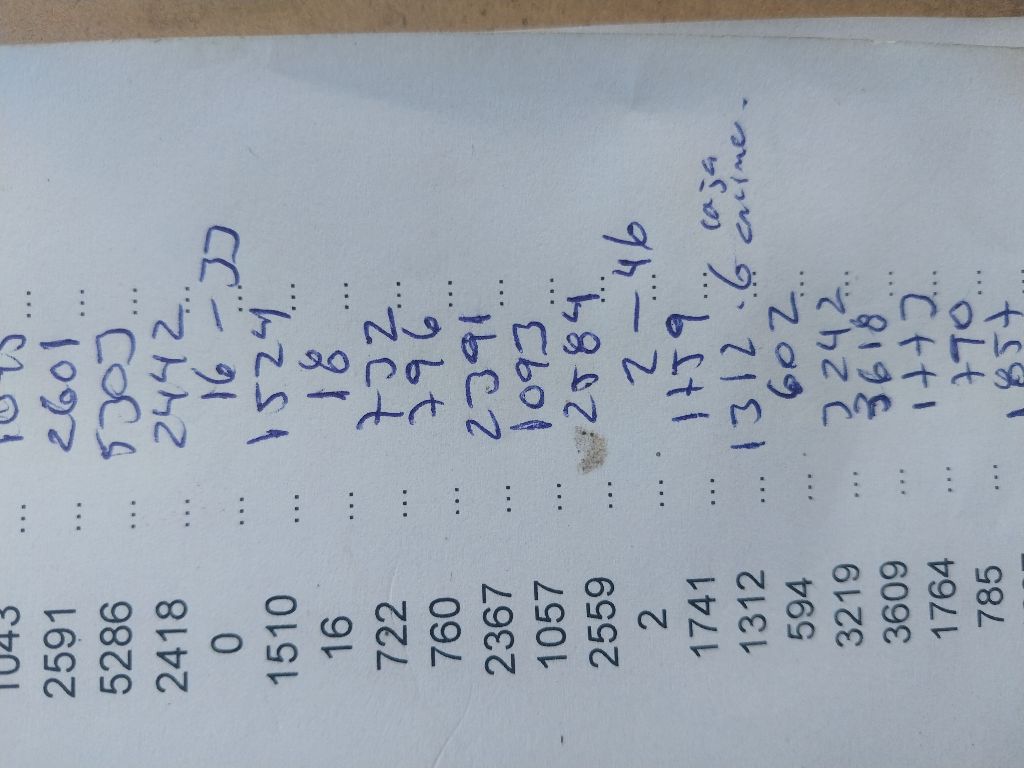 1043 ...
2591 ... 2601 ...
5286 ... 5303 ...
2418 ... 2442 ...
0 ... 16 - 33 ...
1510 ... 1524 ...
16 ... 18 ...
722 ... 732 ...
760 ... 796 ...
2367 ... 2391 ...
1057 ... 1093 ...
2559 ... 2584 ...
2 ... 2 - 46 ...
1741 ... 1759 ...
1312 ... 1312 .6 caja
594 ... 602 ...
3219 ... 3242 ...
3609 ... 3618 ...
1764 ... 1773 ...
785 ... 790 ...
1857 ...